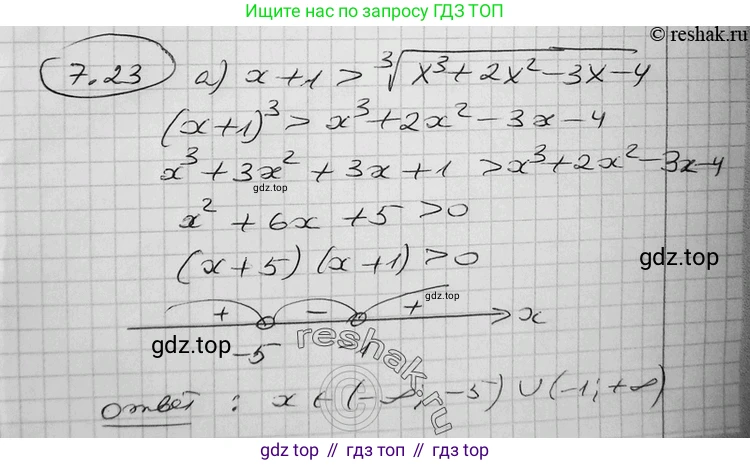 Ищите нас по запросу ГДЗ ТОП
© reshak.ru
7.23 а) x+1 > ∛(x³+2x²-3x-4)
(x+1)³ > x³+2x²-3x-4
x³+3x²+3x+1 > x³+2x²-3x-4
gdz.top
x²+6x+5 > 0
(x+5)(x+1) > 0
gdz.top
+ - + x
gdz.top
gdz.top
-5 -1
reshak.ru
©
ответ: x ∈ (-∞; -5) ∪ (-1; +∞)
gdz top // гдз топ // gdz.top